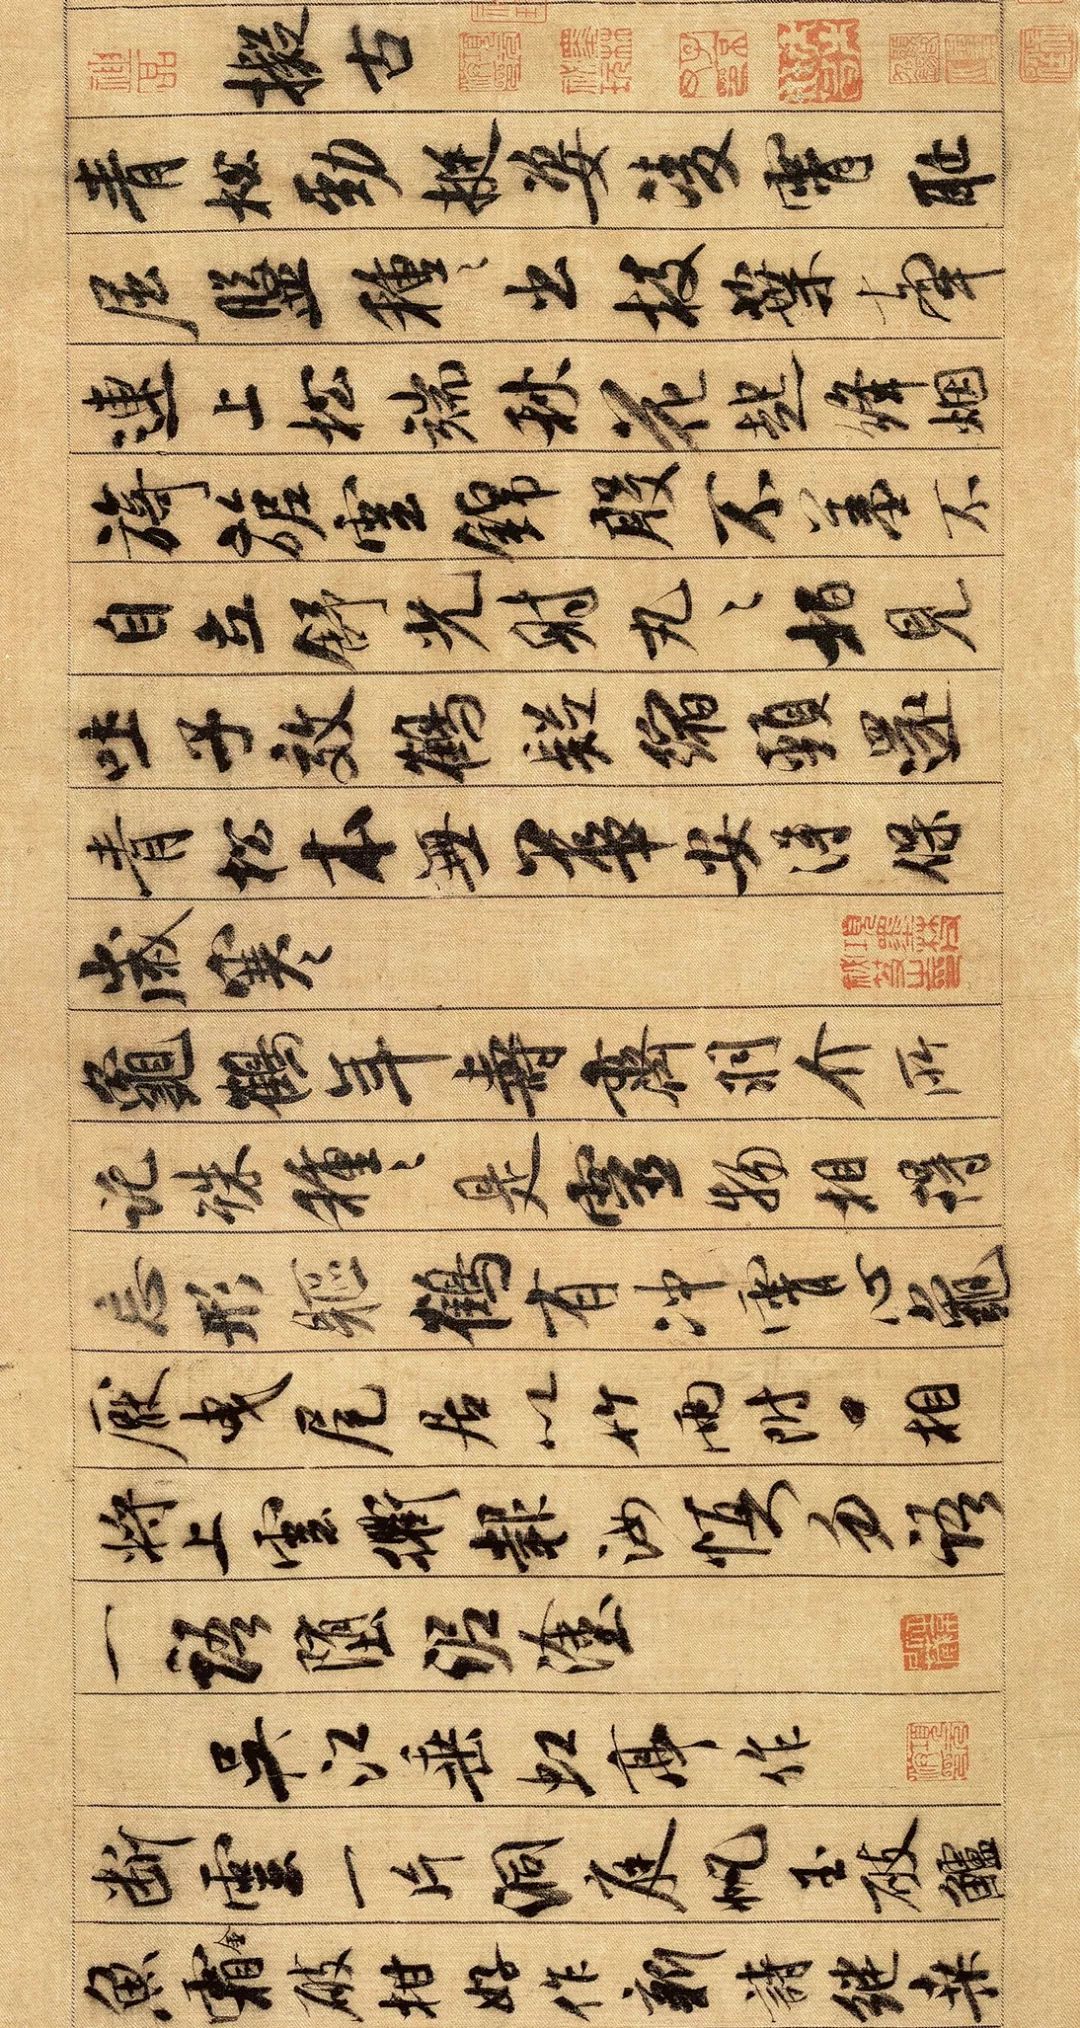 擬古
青松勁挺姿凌霄恥
屈盤種々出枝葉牽
連上松端秋花起絳烟
旖旎雲錦殷不羞不
自立舒光射丸々栢見
吐子效鶴疑縮頸還
青松本無華安得保
歲寒々
龜鶴年壽齊羽介所
託殊種々是靈物相得
忘形軀鶴有沖霄心龜
厭曳尾居以竹兩附口相
將上雲衢報汝慎勿語
一語墮泥塗
吳江垂虹亭作
斷雲一片洞庭帆玉破鱸
魚霜金破柑好作新詩繼桑